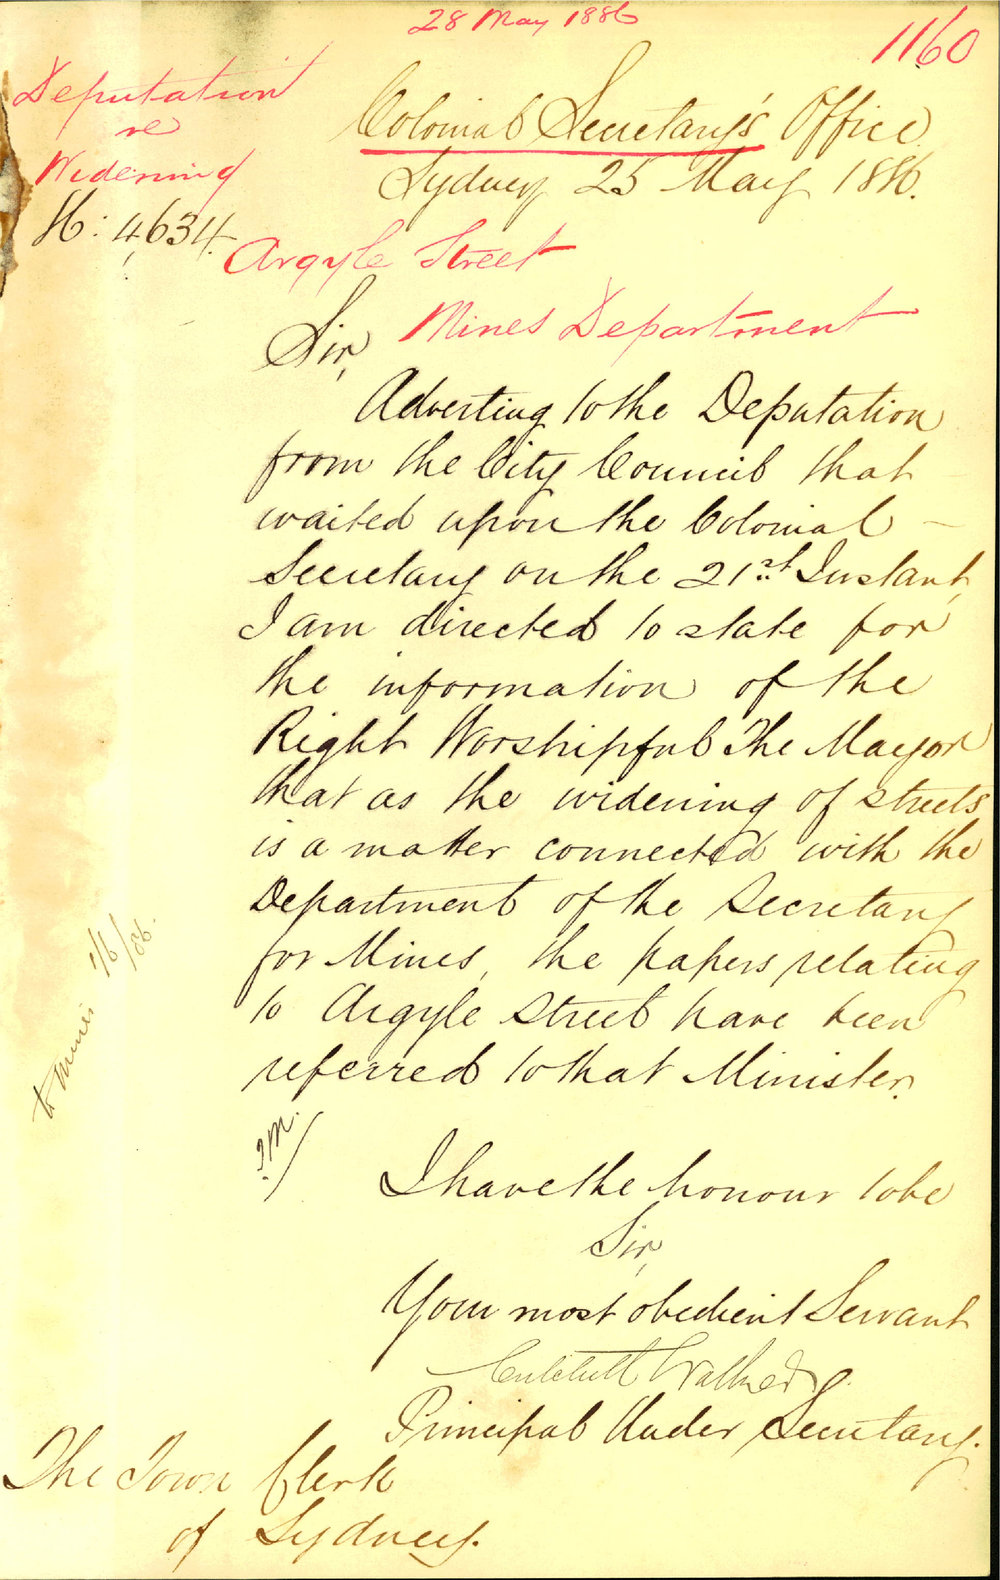 28 May 1886
1160
Deputation
re
Widening
Argyle Street
Mines Department
Colonial Secretary's Office
Sydney 25 May 1886.
H: 4634
Sir,
Adverting to the Deputation
from the City Council that
waited upon the Colonial
Secretary on the 21st Instant,
I am directed to state for
the information of the
Right Worshipful The Mayor
that as the widening of streets
is a matter connected with the
Department of the Secretary
for Mines, the papers relating
to Argyle Street have been
referred to that Minister.
I have the honour to be
Sir,
Your most obedient Servant
Critchett Walker
Principal Under Secretary.
The Town Clerk
of Sydney.
to Mines 1/6/86.